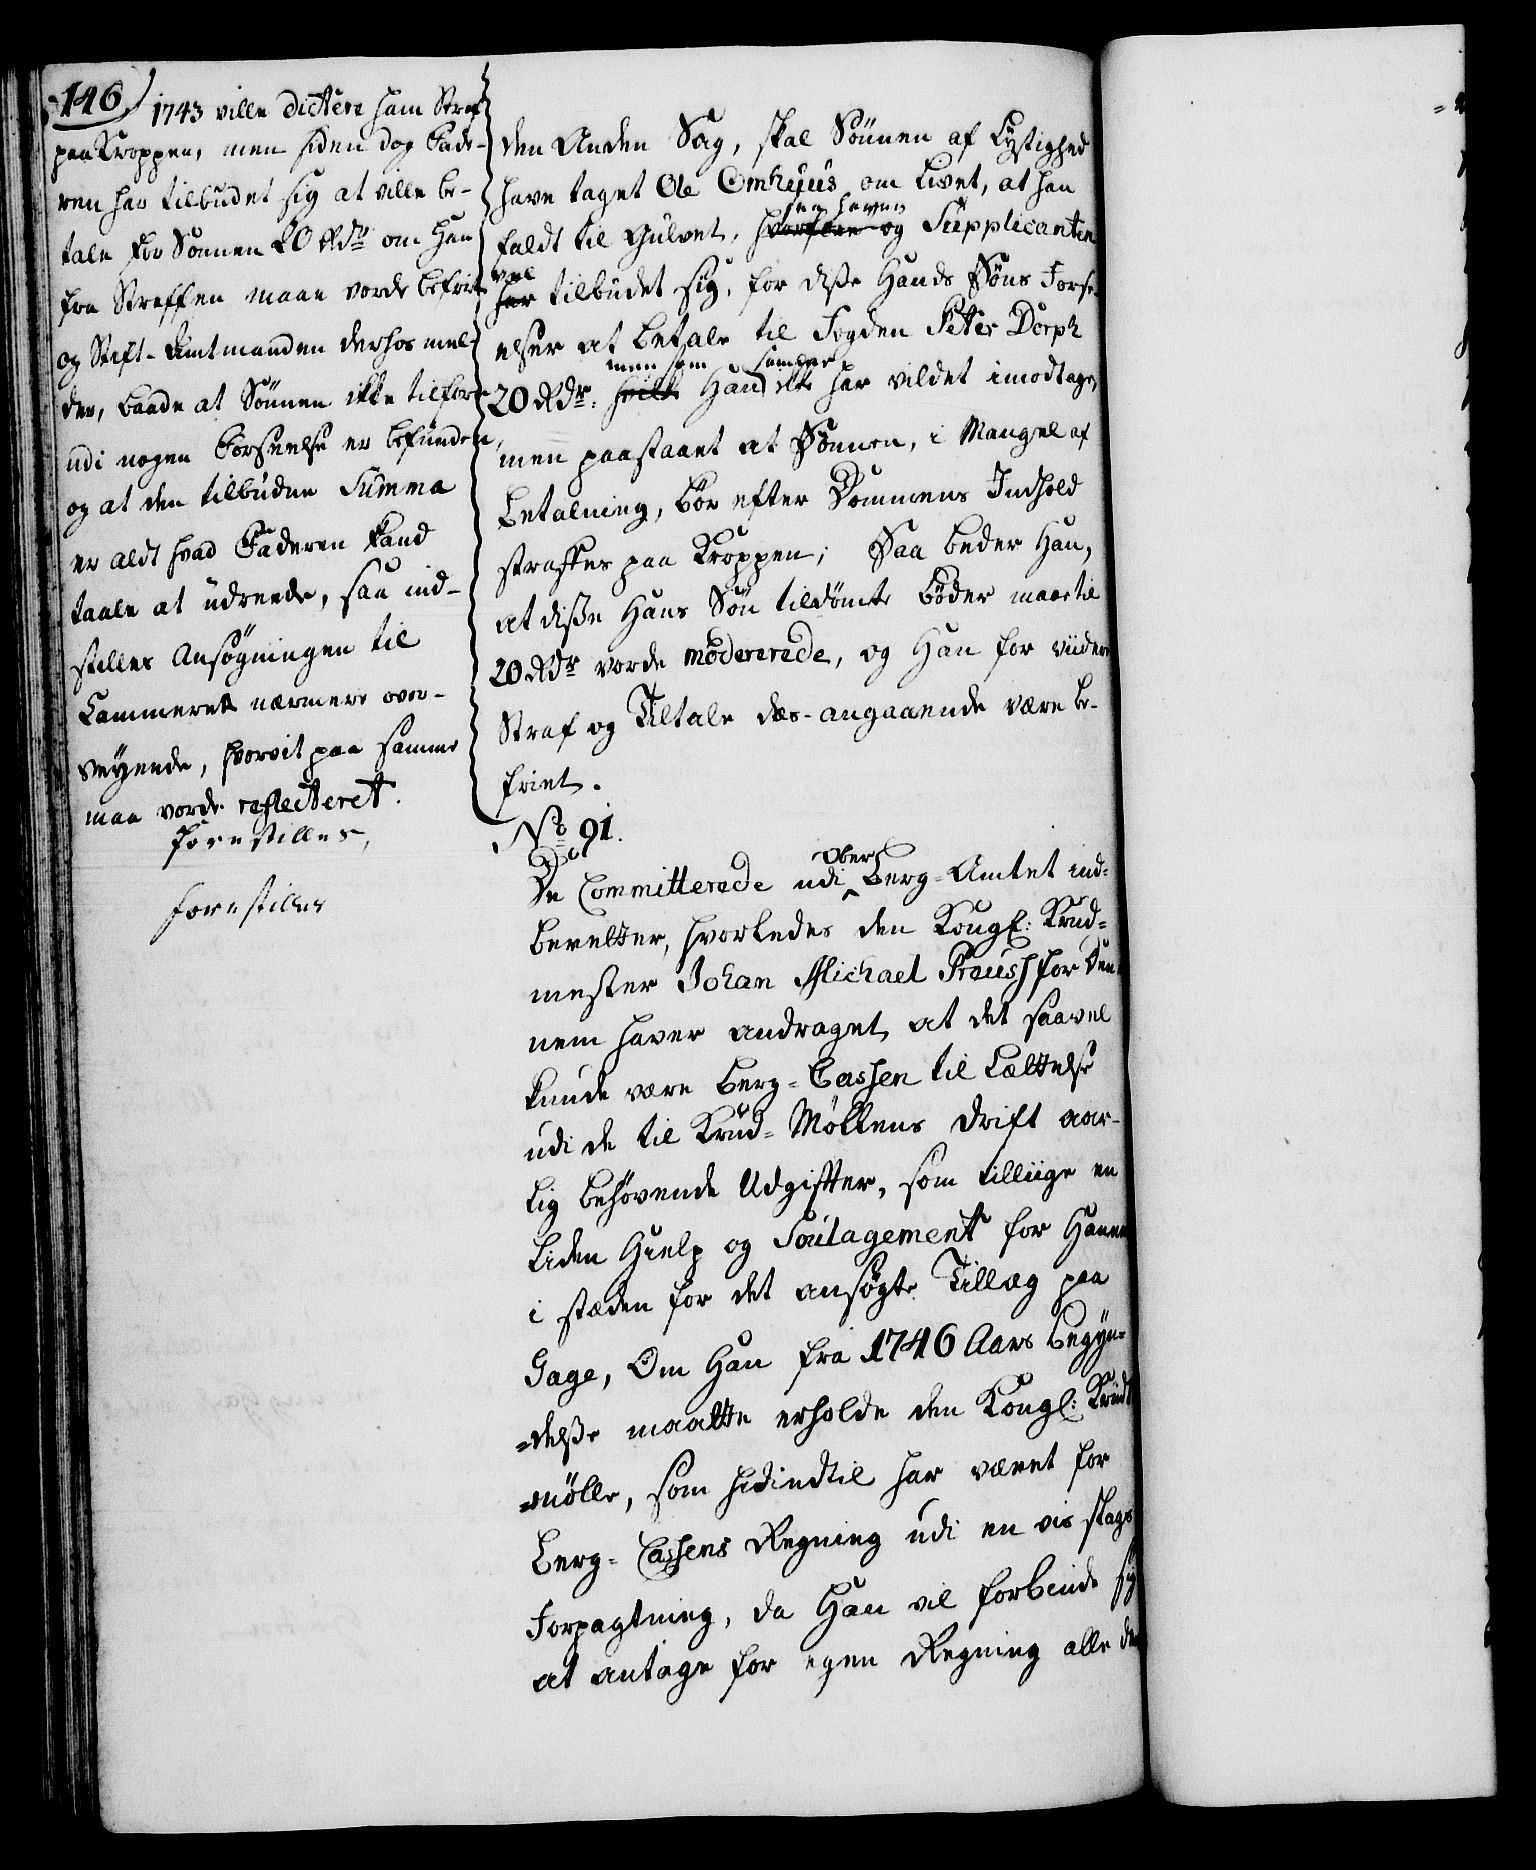 146
1743 ville dictere ham Straf
paa Kroppen, men siden dog Fade-
ren har tilbudet sig at ville be-
tale for Sønnen 20 Rdr om Han
fra Straffen maae vorde befriet
og Stift-Amtmanden derhos mel-
der, baade at Sønnen ikke tilforn
udi nogen Forseelse er befunden,
og at den tilbudne Summa
er aldt hvad Faderen kand
taale at udreede, saa ind-
stilles Ansøgningen til
Cammerets nærmere over-
veyende, hvorvit paa samme
maa vorde reflecteret.
forestilles,
forestilles
den Anden Sag, skal Sønnen af Lystighed
have taget Ole Omhuus om Livet, at han
faldt til Gulvet, og Supplicanten
vel
har tilbudet sig, for disse Hands Søns Forse-
elser at betale til Fogden Peter Dorph
men som samme
20 Rdr. hvilke Hand ikke har vildet imodtage,
men paastaaet at Sønnen, i Mangel af
Betalning, bør efter Dommens Indhold
straffes paa Kroppen; Saa beder Han,
at disse Hans Søn tildømte Bøder maae til
20 Rdr vorde modererede, og Han for viidere
Straf og Tiltale des-angaaende være be-
friet.
No 91.
Ober
De Committerede udi Berg-Amtet ind-
beretter, hvorledes den Kongl: Krud-
mester Johan Michael Preusch for Den-
nem haver andraget, at det saavel
kunde være Berg-Cassen til Lættelse
udi de til Krud-Møllens Drift aar-
lig behøvende Udgifter, som tilliige en
liden Hielp og Soulagement for Hannem
i stæden for det ansøgte Tillæg paa
Gage, Om Han fra 1746 Aars Begyn-
delse maatte erholde den Kongl: Krudt
-mølle, som hidindtil har været for
Berg-Cassens Regning udi en vis slags
Forpagtning, da Han vil forbinde sig
at antage for egen Regning alle de